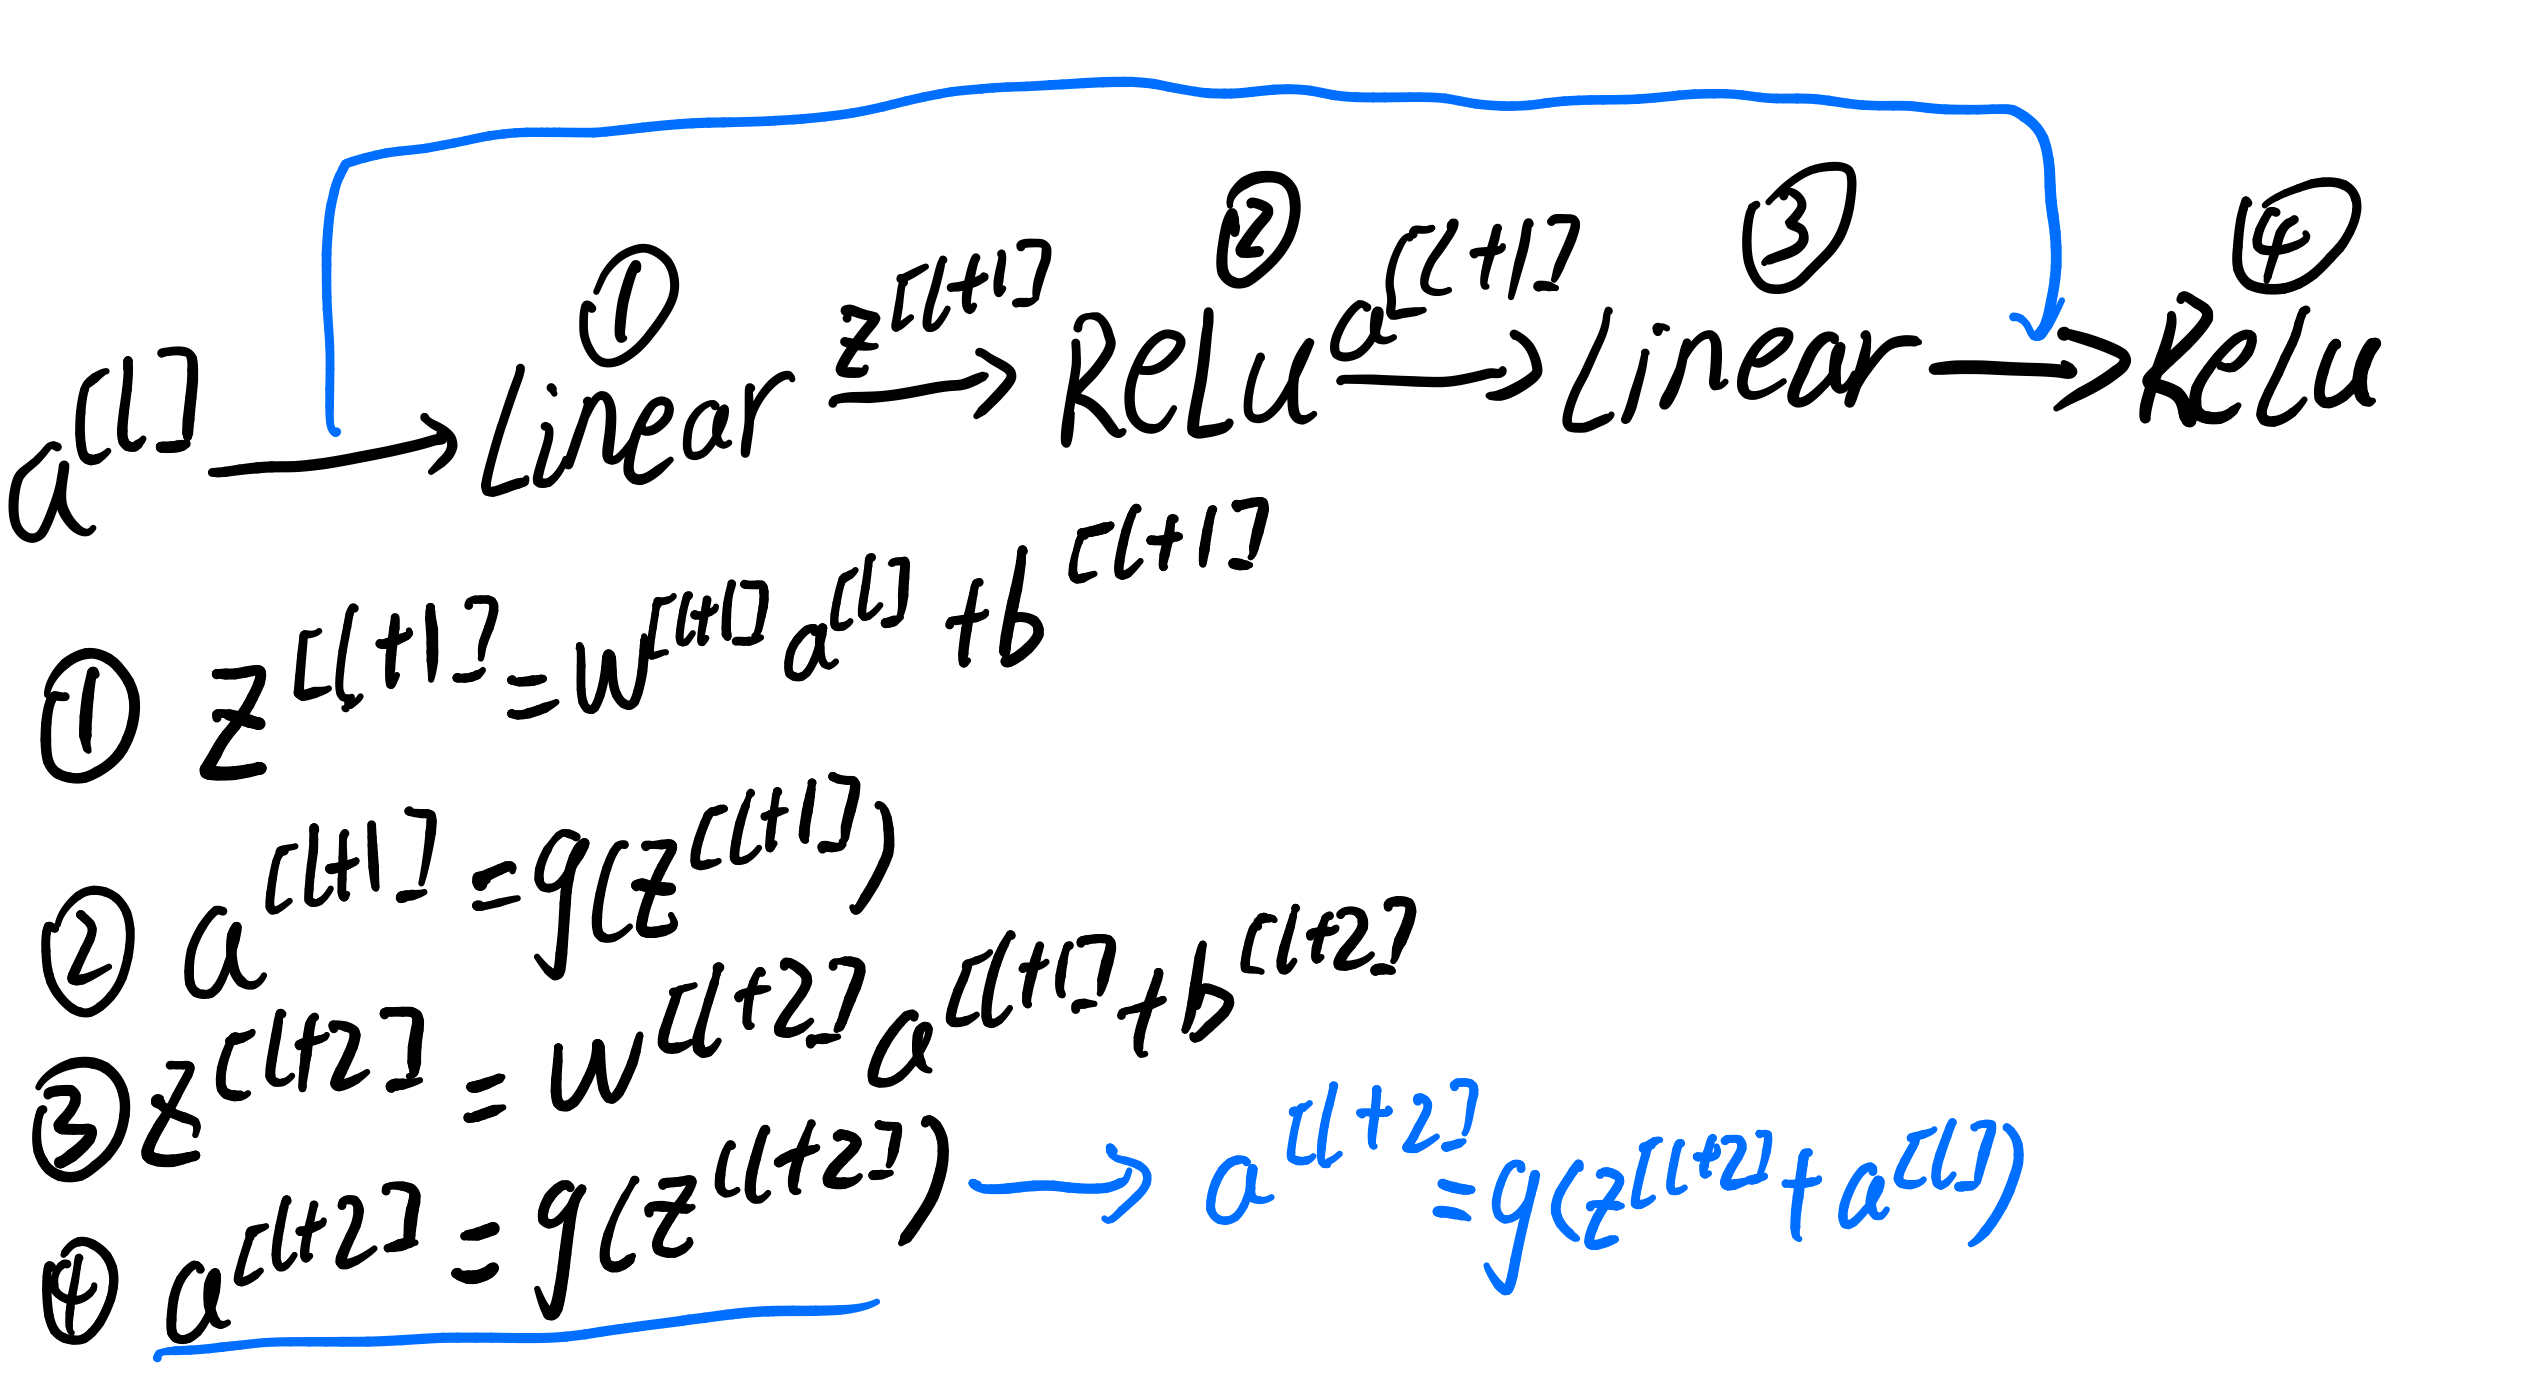 ① ② ③ ④
a^[l] → Linear z^[l+1] → ReLu a^[l+1] → Linear → ReLu
① z^[l+1] = w^[l+1] a^[l] + b^[l+1]
② a^[l+1] = g(z^[l+1])
③ z^[l+2] = w^[l+2] a^[l+1] + b^[l+2]
④ a^[l+2] = g(z^[l+2]) → a^[l+2] = g(z^[l+2] + a^[l])